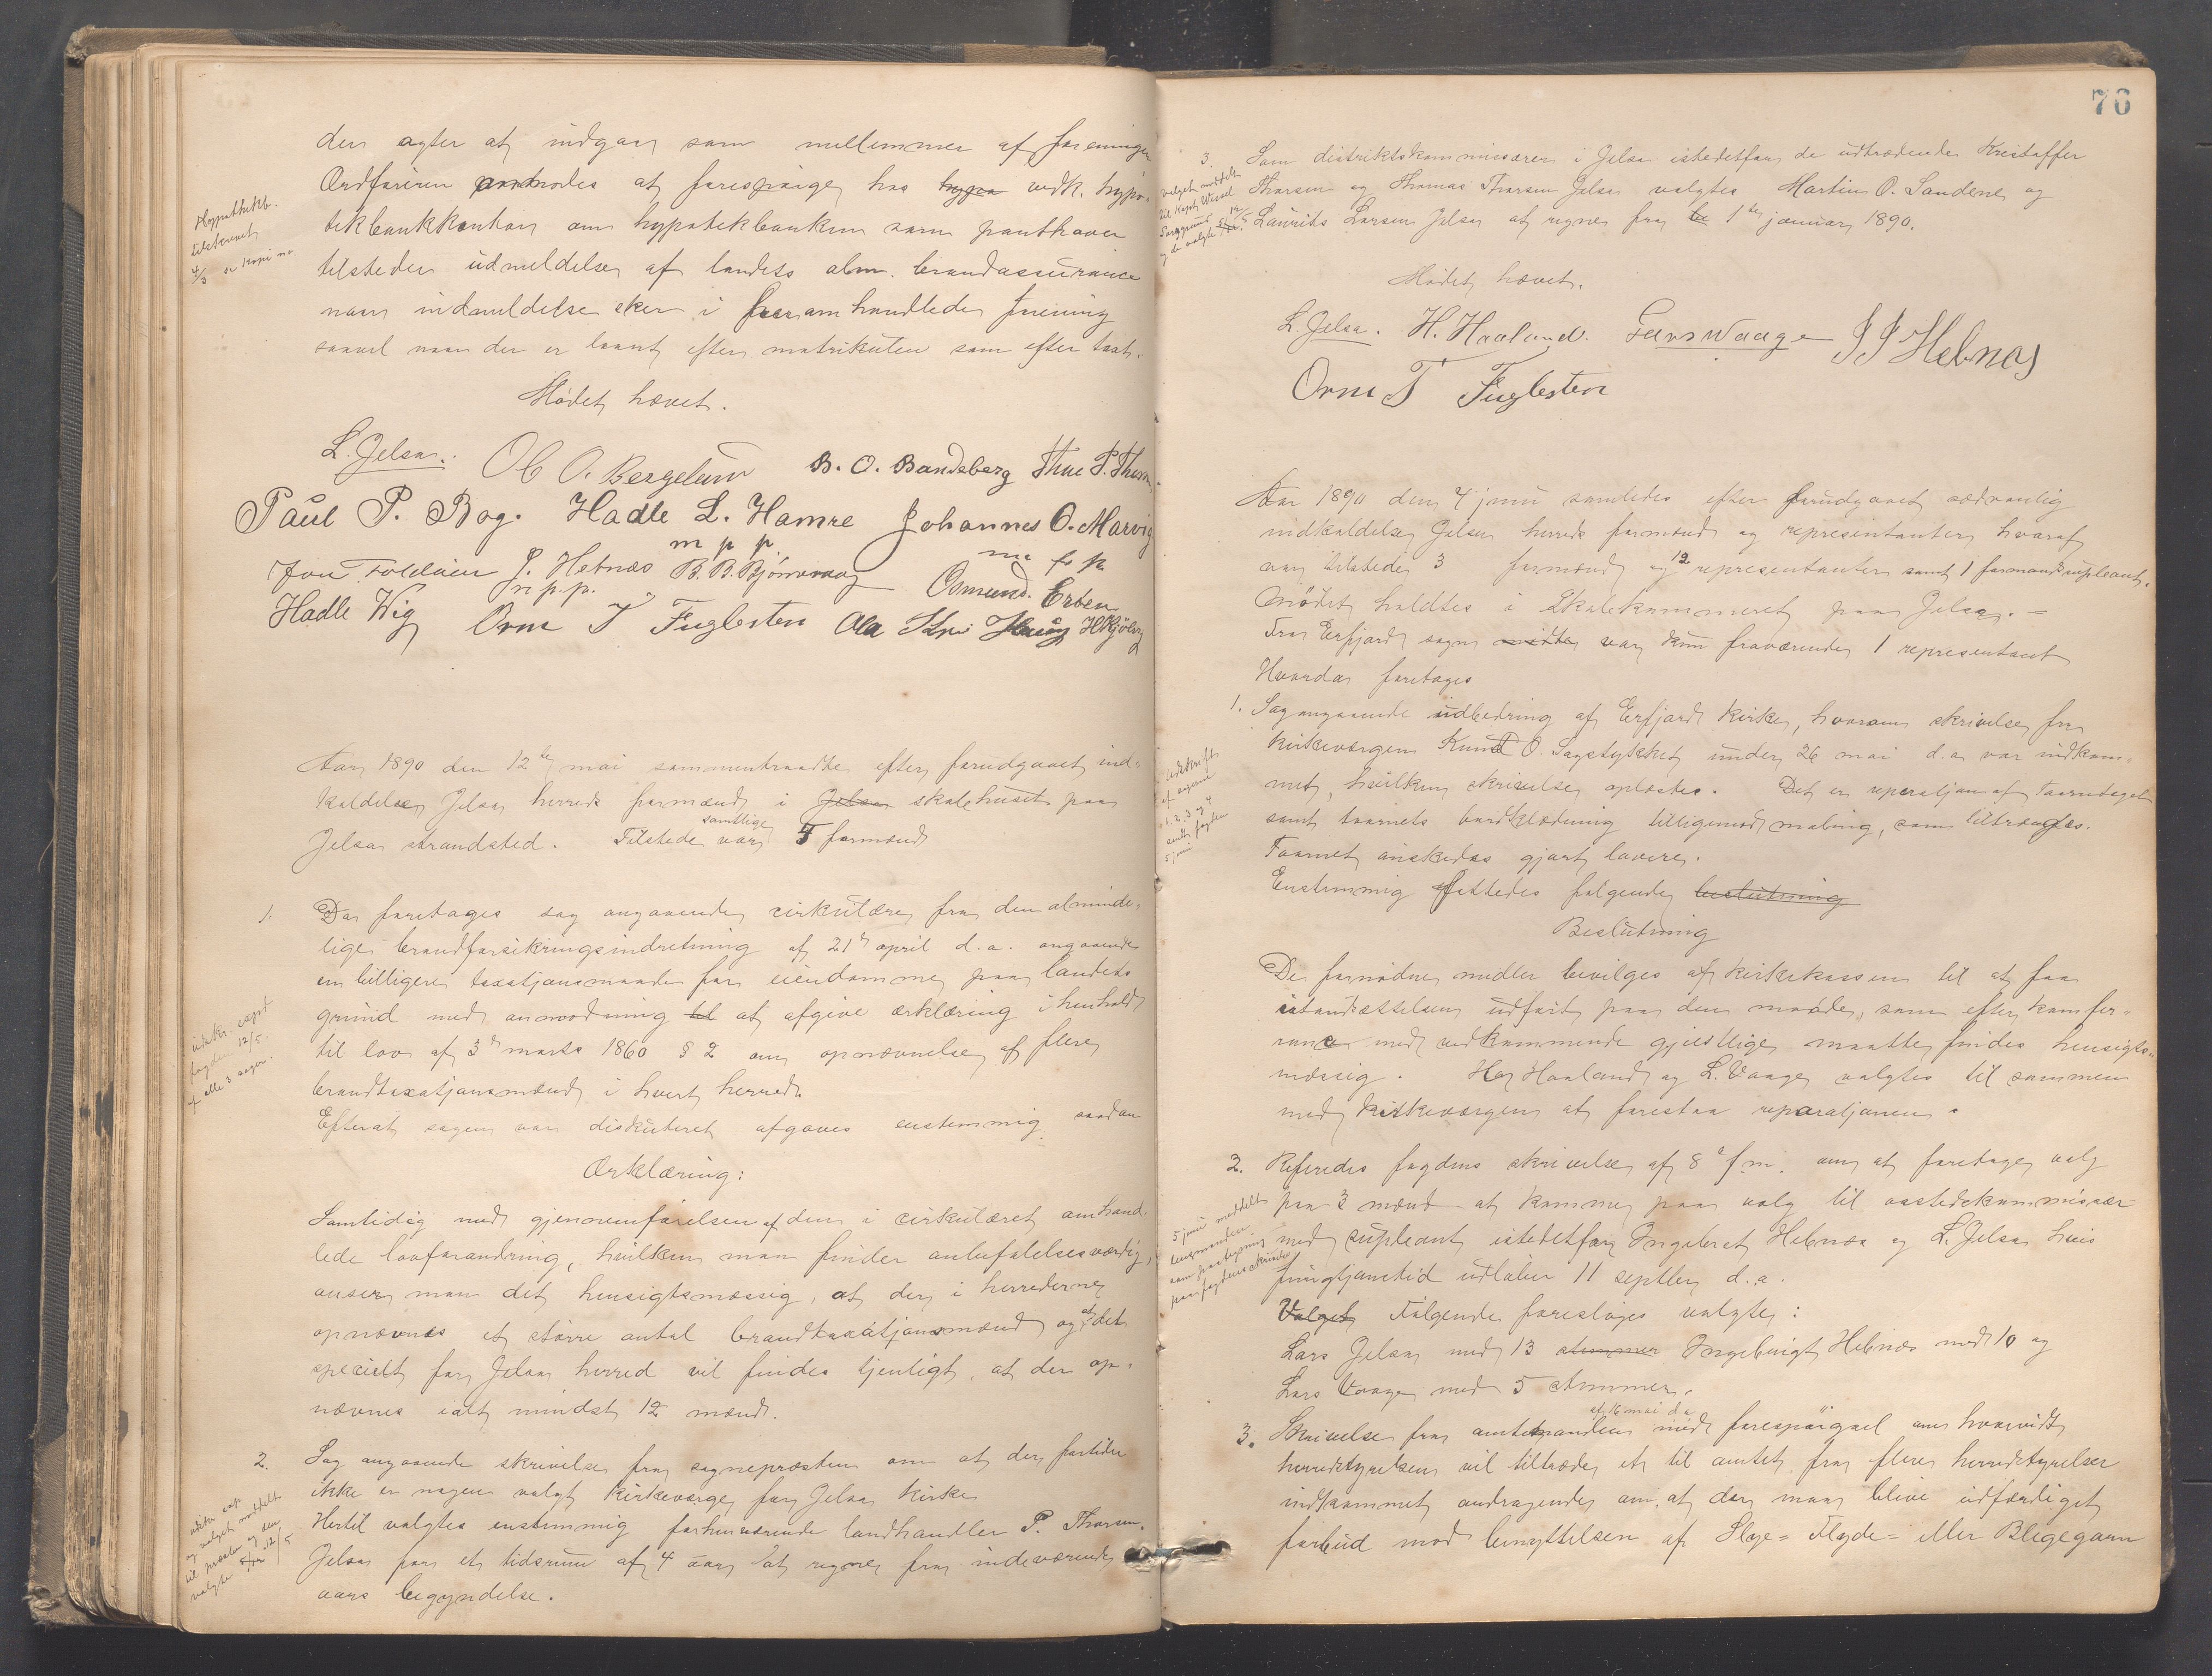 der agter at indgaa som medlemmer af foreningen
Ordføreren anmodes at forespørge hos hypo vedk. hypo-
tekbankkontor om hypotekbanken som panthaver
tilsteder udmeldelse af landets alm. brandassurance
naar indmeldelse sker i heromhandlede forening
saavel naar der er laant efter matrikulen som efter taxt.
Hypothekb.
tilskrevet
4/3 se kopi no.
Mødet hævet.
L. Jelsa. Ole O. Bergeland B. O. Bandeberg Thue P. Thuen
Paul P. Bog. Hadle L. Hamre Johannes O. Marvig
m p p
Jon Foldøien J. Hebnæs B. B. Bjønnvaag Osmund Erben
m.p.p.
Hadle Wig Orm T Fuglesten Ola
Aar 1890 den 12te mai sammentraadte efter forudgaaet ind-
kaldelse Jelsa herreds formænd i Jelsa skolehuset paa
Jelsa strandsted. Tilstede var samtlige 5 formænd
1. Da foretages sag angaaende cirkulære fra den alminde-
lige brandforsikringsindretning af 21de april d.a. angaaende
en billigere taxatjonsmaade for eiendomme paa landets
grund med anmodning til at afgive erklæring i henhold
til lov af 3de marts 1860 § 2 om opnævnelse af flere
brandtaxatjonsmænd i hvert herred.
Efterat sagen var diskuteret afgaves enstemmig saadan
udskr. expd
fogden 12/5.
af alle 3 sager.
Erklæring:
Samtidig med gjennemførelsen af den i cirkulæret omhand-
lede lovforandring, hvilken man finder anbefalelsesværdig,
anser man det hensigtsmæssig, at der i herrederne
opnævnes et større antal brandtaxatjonsmænd og at det
specielt for Jelsa herred vil findes tjenligt, at der op-
nævnes ialt mindst 12 mænd.
2. Sag angaaende skrivelse fra sognepræsten om at der fortiden
ikke er nogen valgt kirkeværge for Jelsa kirke
Hertil valgtes enstemmig forhenværende landhandler P. Thorsen
Jelsa for et tidsrum af 4 aar at regne fra indeværende
aars begyndelse.
udskr. exp.
og valget meddelt
til præsten og den
valgte 12/5
76
3. Som distriktskommissærer i Jelsa istedetfor de udtrædende Kristoffer
Thorsen og Thomas Thorsen Jelsa valgtes Martin O. Sandene og
Laurits Larsen Jelsa at regne fra 1te januar 1890.
valget meddelt
til Kapt. Wessel
og de valgte
Mødet hævet.
L. Jelsa. H. Haaland. Lars Waage J J Hebnes
Orm T Fuglesten
Aar 1890 den 4 juni samledes efter forudgaaet sædvanlig
indkaldelse Jelsa herreds formænd og repræsentanter hvoraf
var tilstede 3 formænd og 12 representanter samt 1 formandsupleant.
Mødet holdtes i Skolekammeret paa Jelsa. –
Fra Erfjord sogn mødte var kun fraværende 1 representant
Hvorda foretages
1. Sag angaaende udbedring af Erfjord kirke, hvorom skrivelse fra
kirkeværgen Knud O. Sagstykket under 26 mai d.a. var indkom-
met, hvilken skrivelse oplæstes. Det er reparatjon af Taarntaget
samt taarnets bordklædning tilligemed maling, som tiltrænges.
Taarnet ønskedes gjort lavere.
Enstemmig fattedes følgende beslutning
udskrift
af sagerne
1. 2. 3 og 4
sendt fogden
5 juni
Beslutning
De fornødne midler bevilges af kirkekassen til at faa
istandsættelsen udført paa den maade, som efter konfer-
rance med vedkommende gjeistlige maatte findes hensigts-
mæssig. H. Haaland og L. Vaage valgtes til sammen
med kirkeværgen at forestaa reparatjonen.
2. Referedes fogdens skrivelse af 8 f.m. om at foretage valg
paa 3 mænd at komme paa valg til aastedskommissær
med supleant istedetfor Ingebret Hebnæs og L. Jelsa hvis
fungtjonstid udløber 11 septbr d.a.
Valget Følgende foresloges valgte:
Lars Jelsa med 13 stemmer Ingebrigt Hebnæs med 10 og
Lars Vaage med 5 stemmer.
5 juni meddelt
lensmanden
som paategning
paa fogdens skrivelse
3. Skrivelse fra amtmanden af 16 mai d.a. med forespørgsel om hvorvidt
herredstyrelsen vil tiltræde et til amtet fra flere herredstyrelser
indkommet andragende om, at der maa blive udfærdiget
forbud mod benyttelsen af Flyde- eller Blegegarn